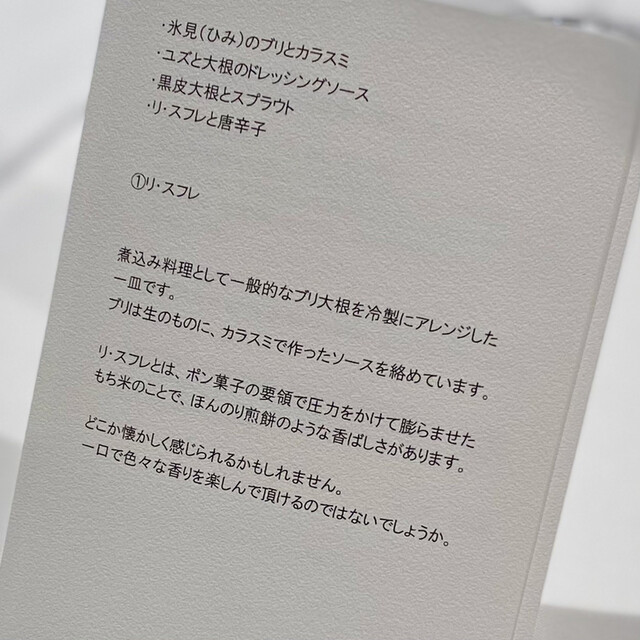 ・氷見(ひみ)のブリとカラスミ
・ユズと大根のドレッシングソース
・黒皮大根とスプラウト
・リ・スフレと唐辛子
①リ・スフレ
煮込み料理として一般的なブリ大根を冷製にアレンジした
一皿です。
ブリは生のものに、カラスミで作ったソースを絡めています。
リ・スフレとは、ポン菓子の要領で圧力をかけて膨らませた
もち米のことで、ほんのり煎餅のような香ばしさがあります。
どこか懐かしく感じられるかもしれません。
一口で色々な香りを楽しんで頂けるのではないでしょうか。